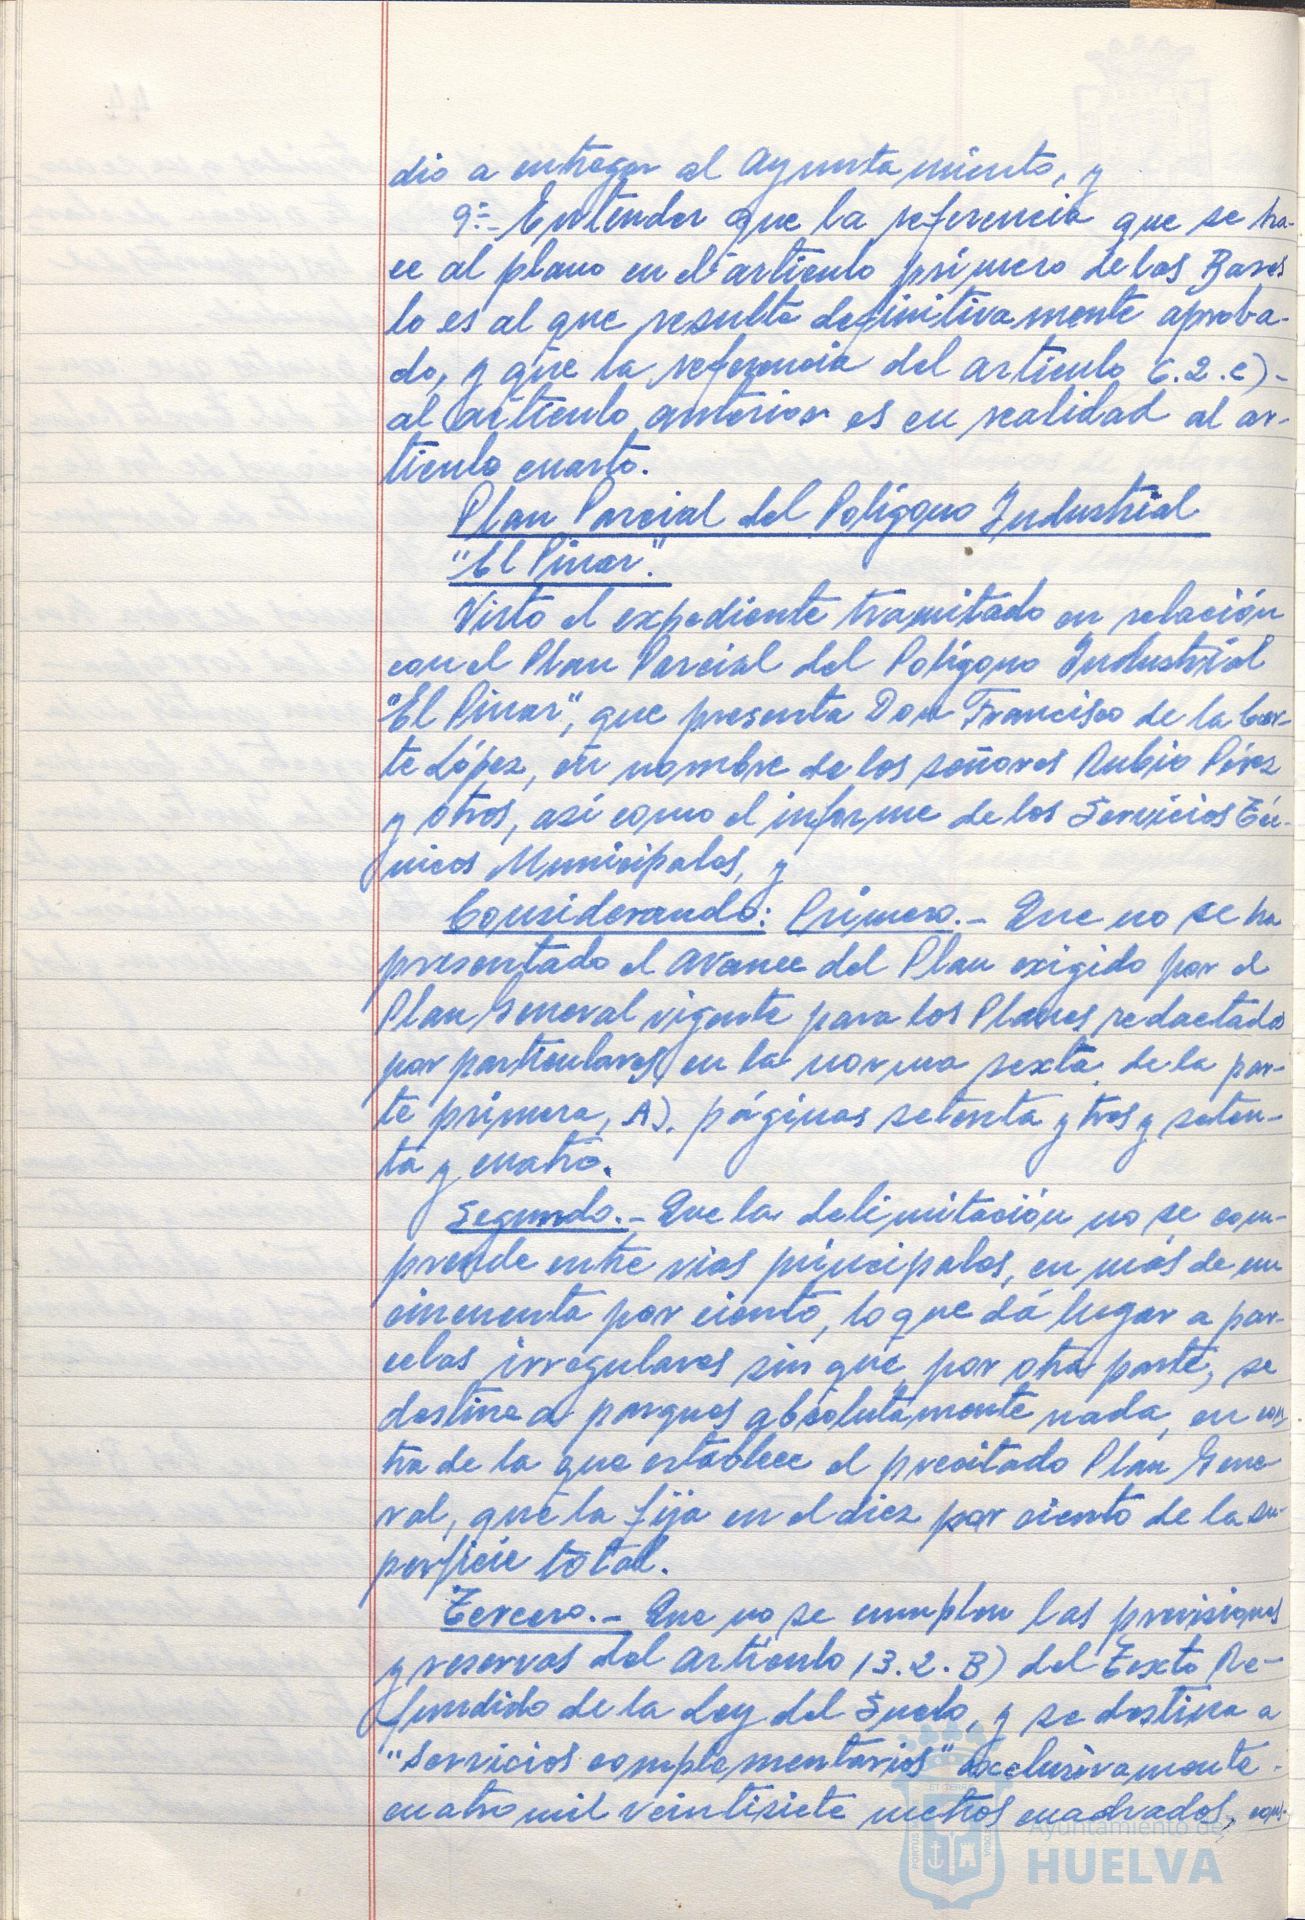 dio a entregar al Ayuntamiento, y
9º.- Entender que la referencia que se ha-
ce al plano en el artículo primero de las Bases
lo es al que resulte definitivamente aproba-
do, y que la referencia del artículo 6.2.c)-
al artículo anterior es en realidad al ar-
tículo cuarto.
Plan Parcial del Polígono Industrial
"El Pinar".
Visto el expediente tramitado en relación
con el Plan Parcial del Polígono Industrial
"El Pinar", que presenta Don Francisco de la Cor-
te López, en nombre de los señores Rubio Pérez
y otros, así como el informe de los Servicios Téc-
nicos Municipales, y
Considerando: Primero.- Que no se ha
presentado el avance del Plan exigido por el
Plan General vigente para los Planes redactados
por particulares, en la norma sexta de la par-
te primera, A), páginas setenta y tres y seten-
ta y cuatro.
Segundo.- Que la delimitación no se com-
prende entre vías principales, en más de un
cincuenta por ciento, lo que dá lugar a par-
celas irregulares sin que, por otra parte, se
destine a parques absolutamente nada, en con
tra de la que establece el precitado Plan Gene
ral, que la fija en el diez por ciento de la su-
perficie total.
Tercero.- Que no se cumplen las previsiones
y reservas del artículo 13.2.B) del Texto Re-
fundido de la Ley del Suelo, y se destina a
"Servicios complementarios" exclusivamente
cuatro mil veintisiete metros cuadrados, con-
Ayuntamiento de
HUELVA